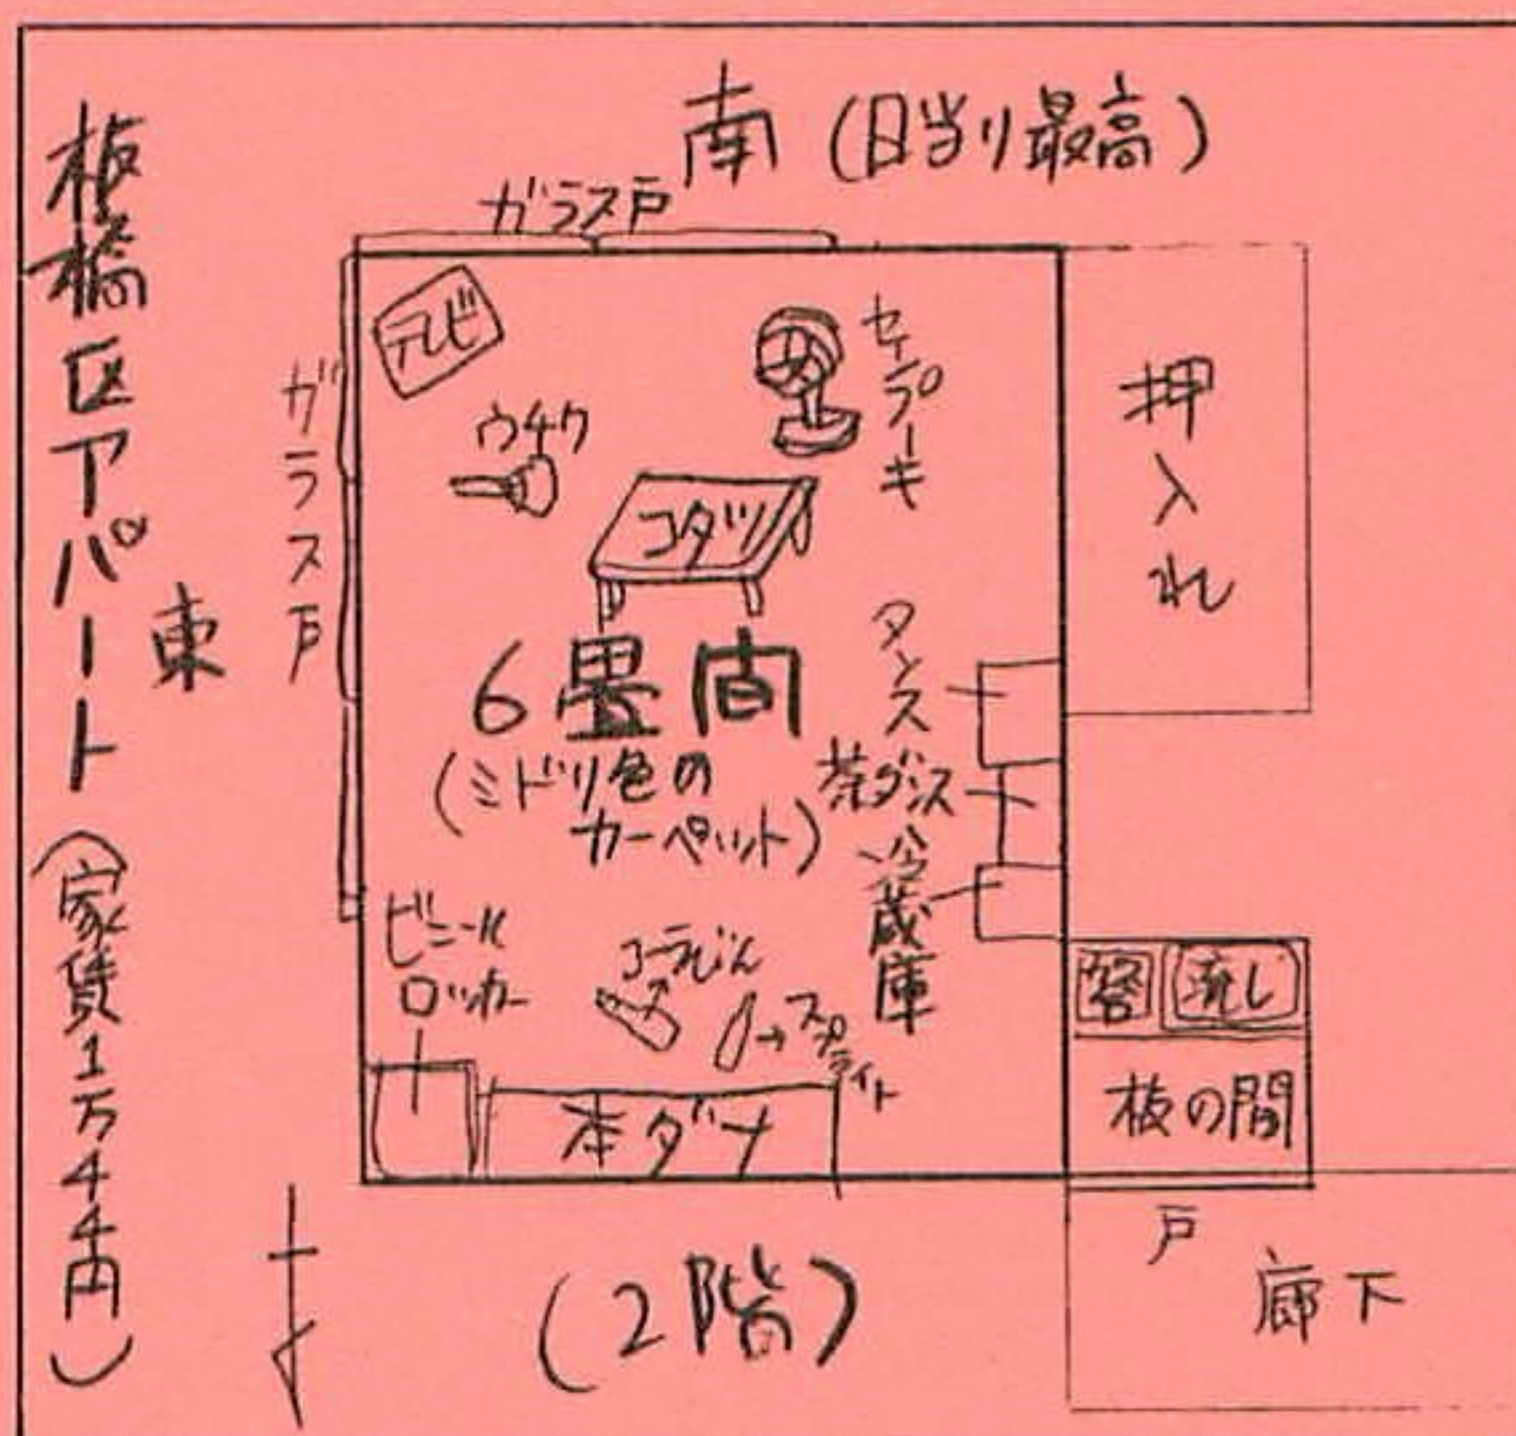 板橋区アパート(家賃1万4千円)
東
南(日当り最高)
ガラス戸
ガラス戸
テレビ
ウチワ
センプーキ
コタツ
6畳間
(ミドリ色の
カーペット)
タンス
茶ダンス
冷蔵庫
押入れ
ビニール
ロッカー
コーラびん
スプライト
本ダナ
流し
板の間
戸
廊下
(2階)